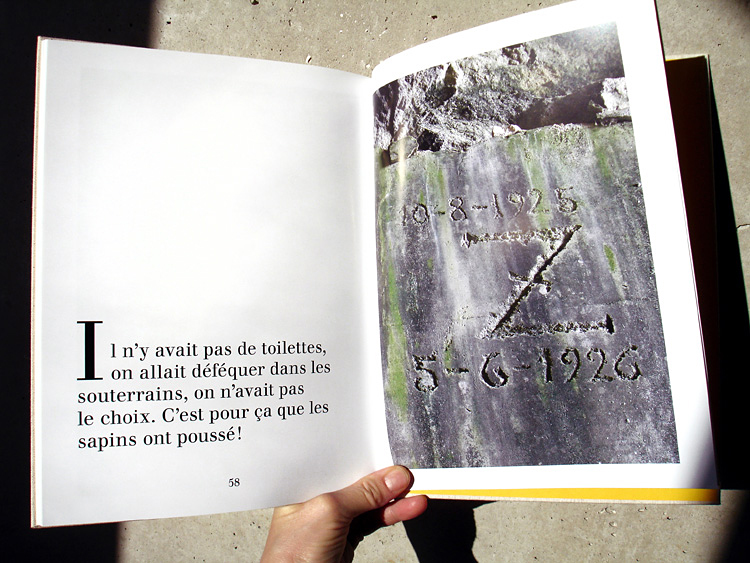 Il n'y avait pas de toilettes,
on allait déféquer dans les
souterrains, on n'avait pas
le choix. C'est pour ça que les
sapins ont poussé!
58
10-8-1925
Z
5-6-1926